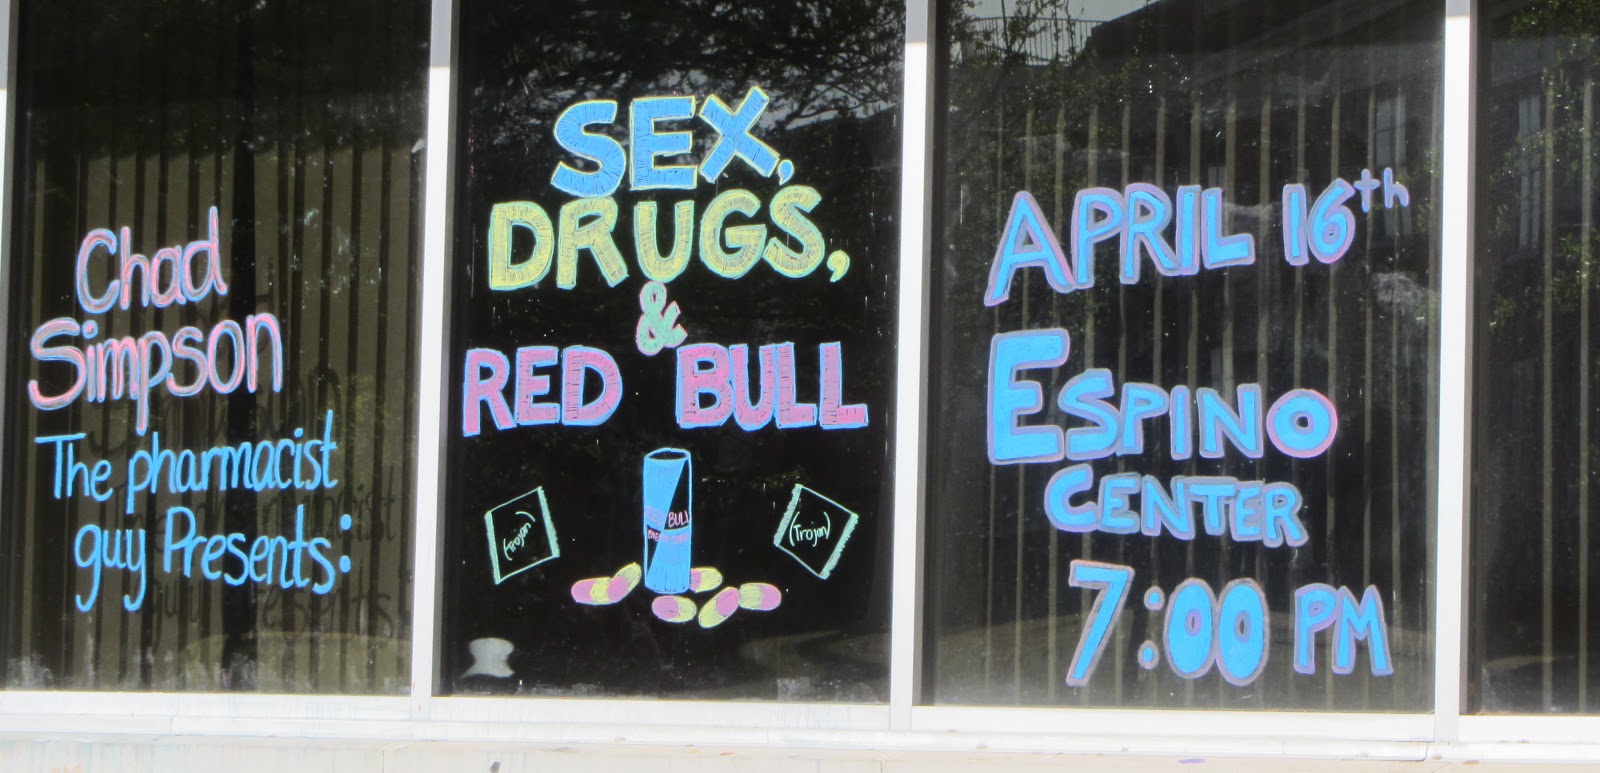 Chad
Simpson
The pharmacist
guy Presents:
SEX,
DRUGS,
&
RED BULL
(Trojan)
BULL
(Trojan)
APRIL 16th
ESPINO
CENTER
7:00 PM